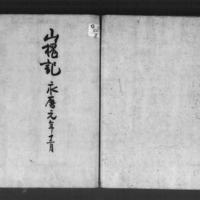 山槐記
永暦元年十二月